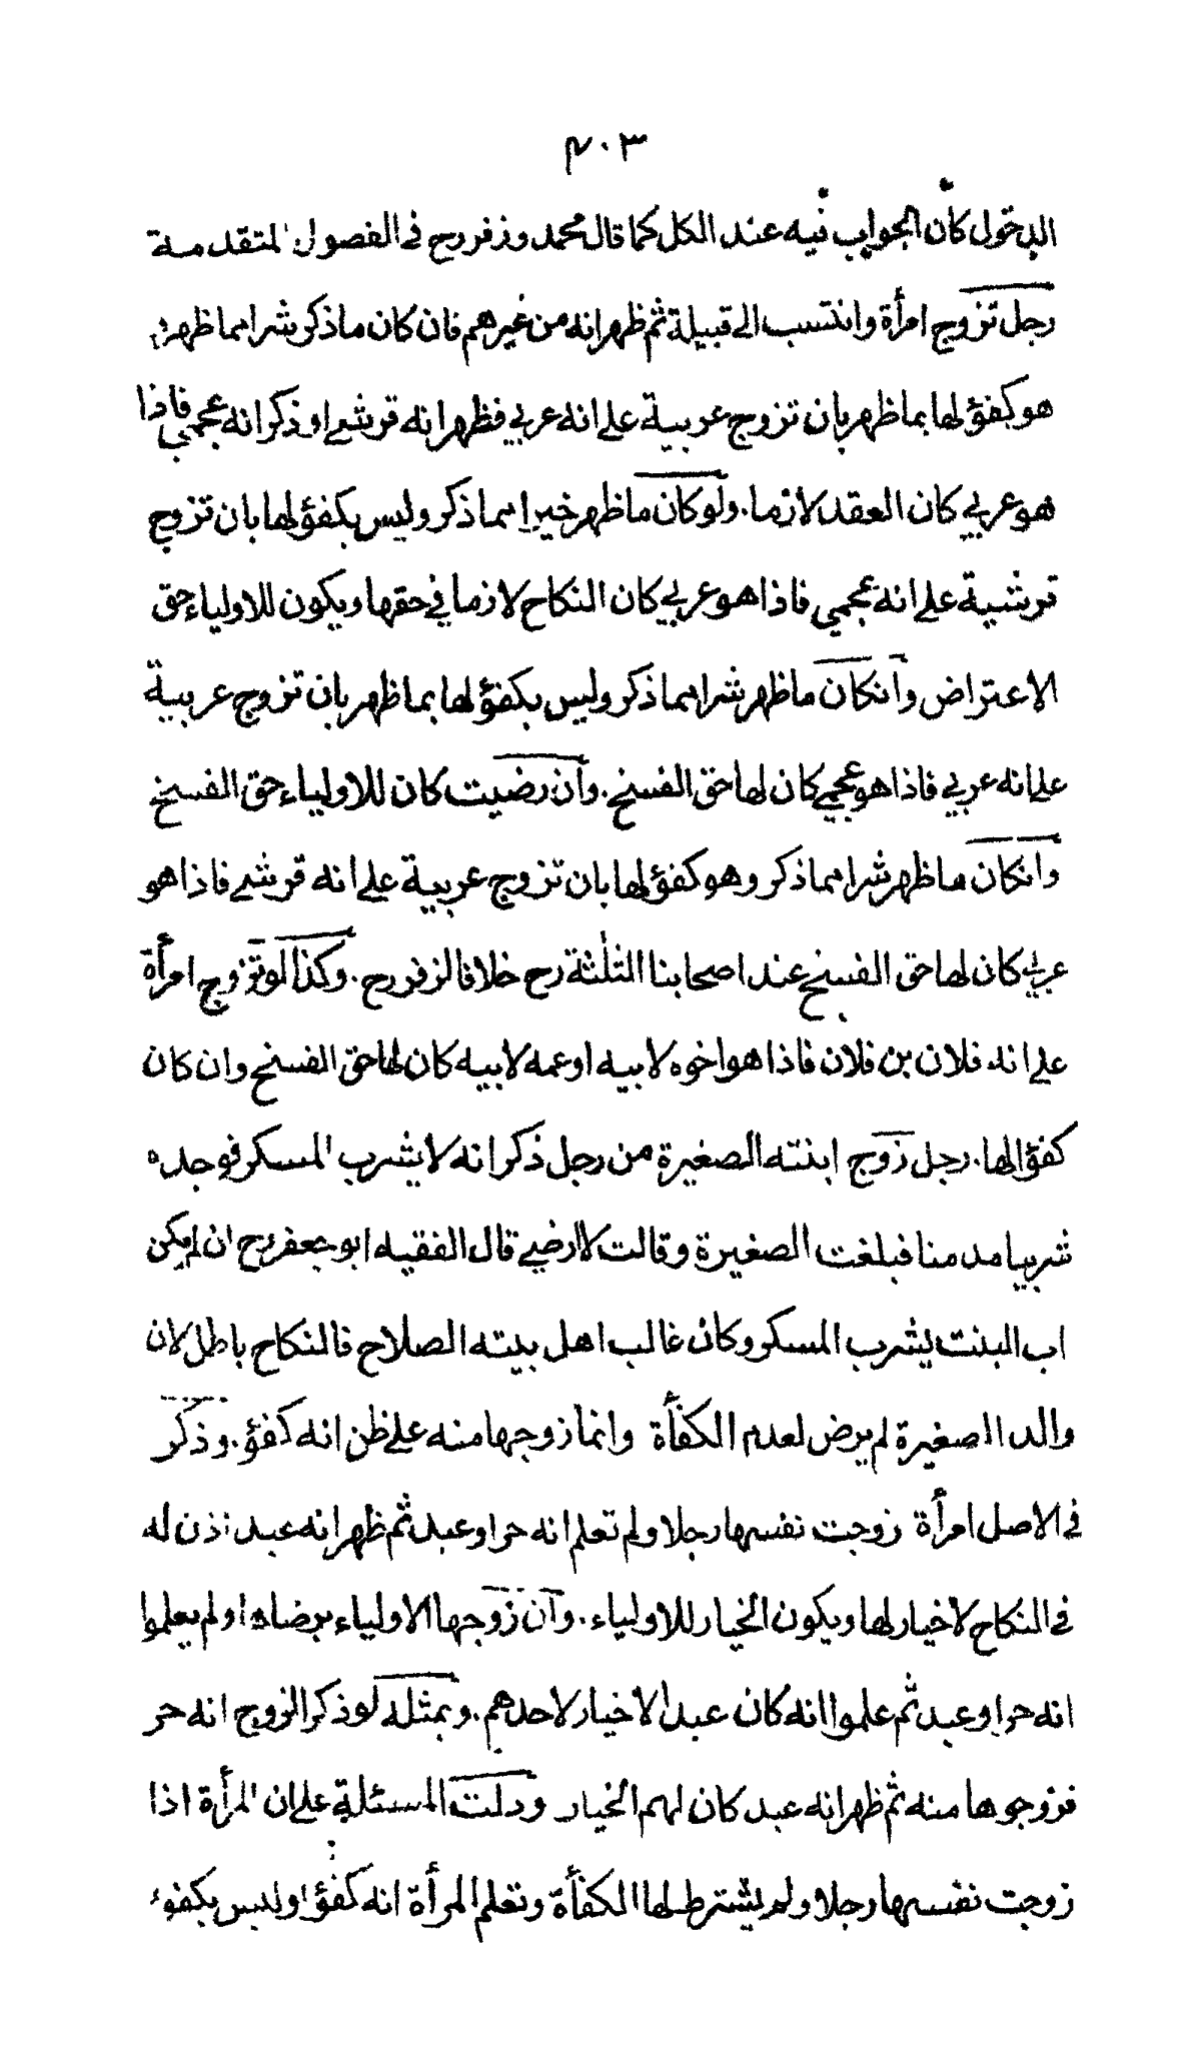 ٤٠٣
الدخول كان الجواب فيه عند الكل كما قال محمد وزفر رح في الفصول المتقدمة
رجل تزوج امرأة وانتسب الى قبيلة ثم ظهر انه من غيرهم فان كان ما ذكر شرا مما ظهر و
هو كفؤ لها بما ظهر بان تزوج عربية على انه عربي فظهر انه قرشي او ذكر انه عجمي فاذا
هو عربي كان العقد لازما. ولو كان ما ظهر خيرا مما ذكر وليس بكفؤ لها بان تزوج
قرشية على انه عجمي فاذا هو عربي كان النكاح لازما في حقها ويكون للاولياء حق
الاعتراض وانكان ما ظهر شرا مما ذكر وليس بكفؤ لها بما ظهر بان تزوج عربية
على انه عربي فاذا هو عجمي كان لها حق الفسخ. وان رضيت كان للاولياء حق الفسخ
وانكان ما ظهر شرا مما ذكر وهو كفؤ لها بان تزوج عربية على انه قرشي فاذا هو
عربي كان لها حق الفسخ عند اصحابنا الثلثة رح خلافا لزفر رح. وكذا لو تزوج امرأة
على انه فلان بن فلان فاذا هو اخوه لابيه او عمه لابيه كان لها حق الفسخ وان كان
كفؤا لها. رجل زوج ابنته الصغيرة من رجل ذكر انه لا يشرب المسكر فوجده
شريبا مدمنا فبلغت الصغيرة وقالت لا ارضى قال الفقيه ابو جعفر رح ان لم يكن
اب البنت يشرب المسكر وكان غالب اهل بيته الصلاح فالنكاح باطل لان
والد الصغيرة لم يرض لعدم الكفأة وانما زوجها منه على ظن انه كفؤ. وذكر
في الاصل امرأة زوجت نفسها رجلا ولم تعلم انه حر او عبد ثم ظهر انه عبد اذن له
في النكاح لا خيار لها ويكون الخيار للاولياء. وان زوجها الاولياء برضاها ولم يعلموا
انه حر او عبد ثم علموا انه كان عبدا لا خيار لاحدهم. وبمثله لو ذكر الزوج انه حر
فزوجوها منه ثم ظهر انه عبد كان لهم الخيار ودلت المسئلة على ان المرأة اذا
زوجت نفسها رجلا ولم يشترط لها الكفأة وتعلم المرأة انه كفؤ او ليس بكفوء